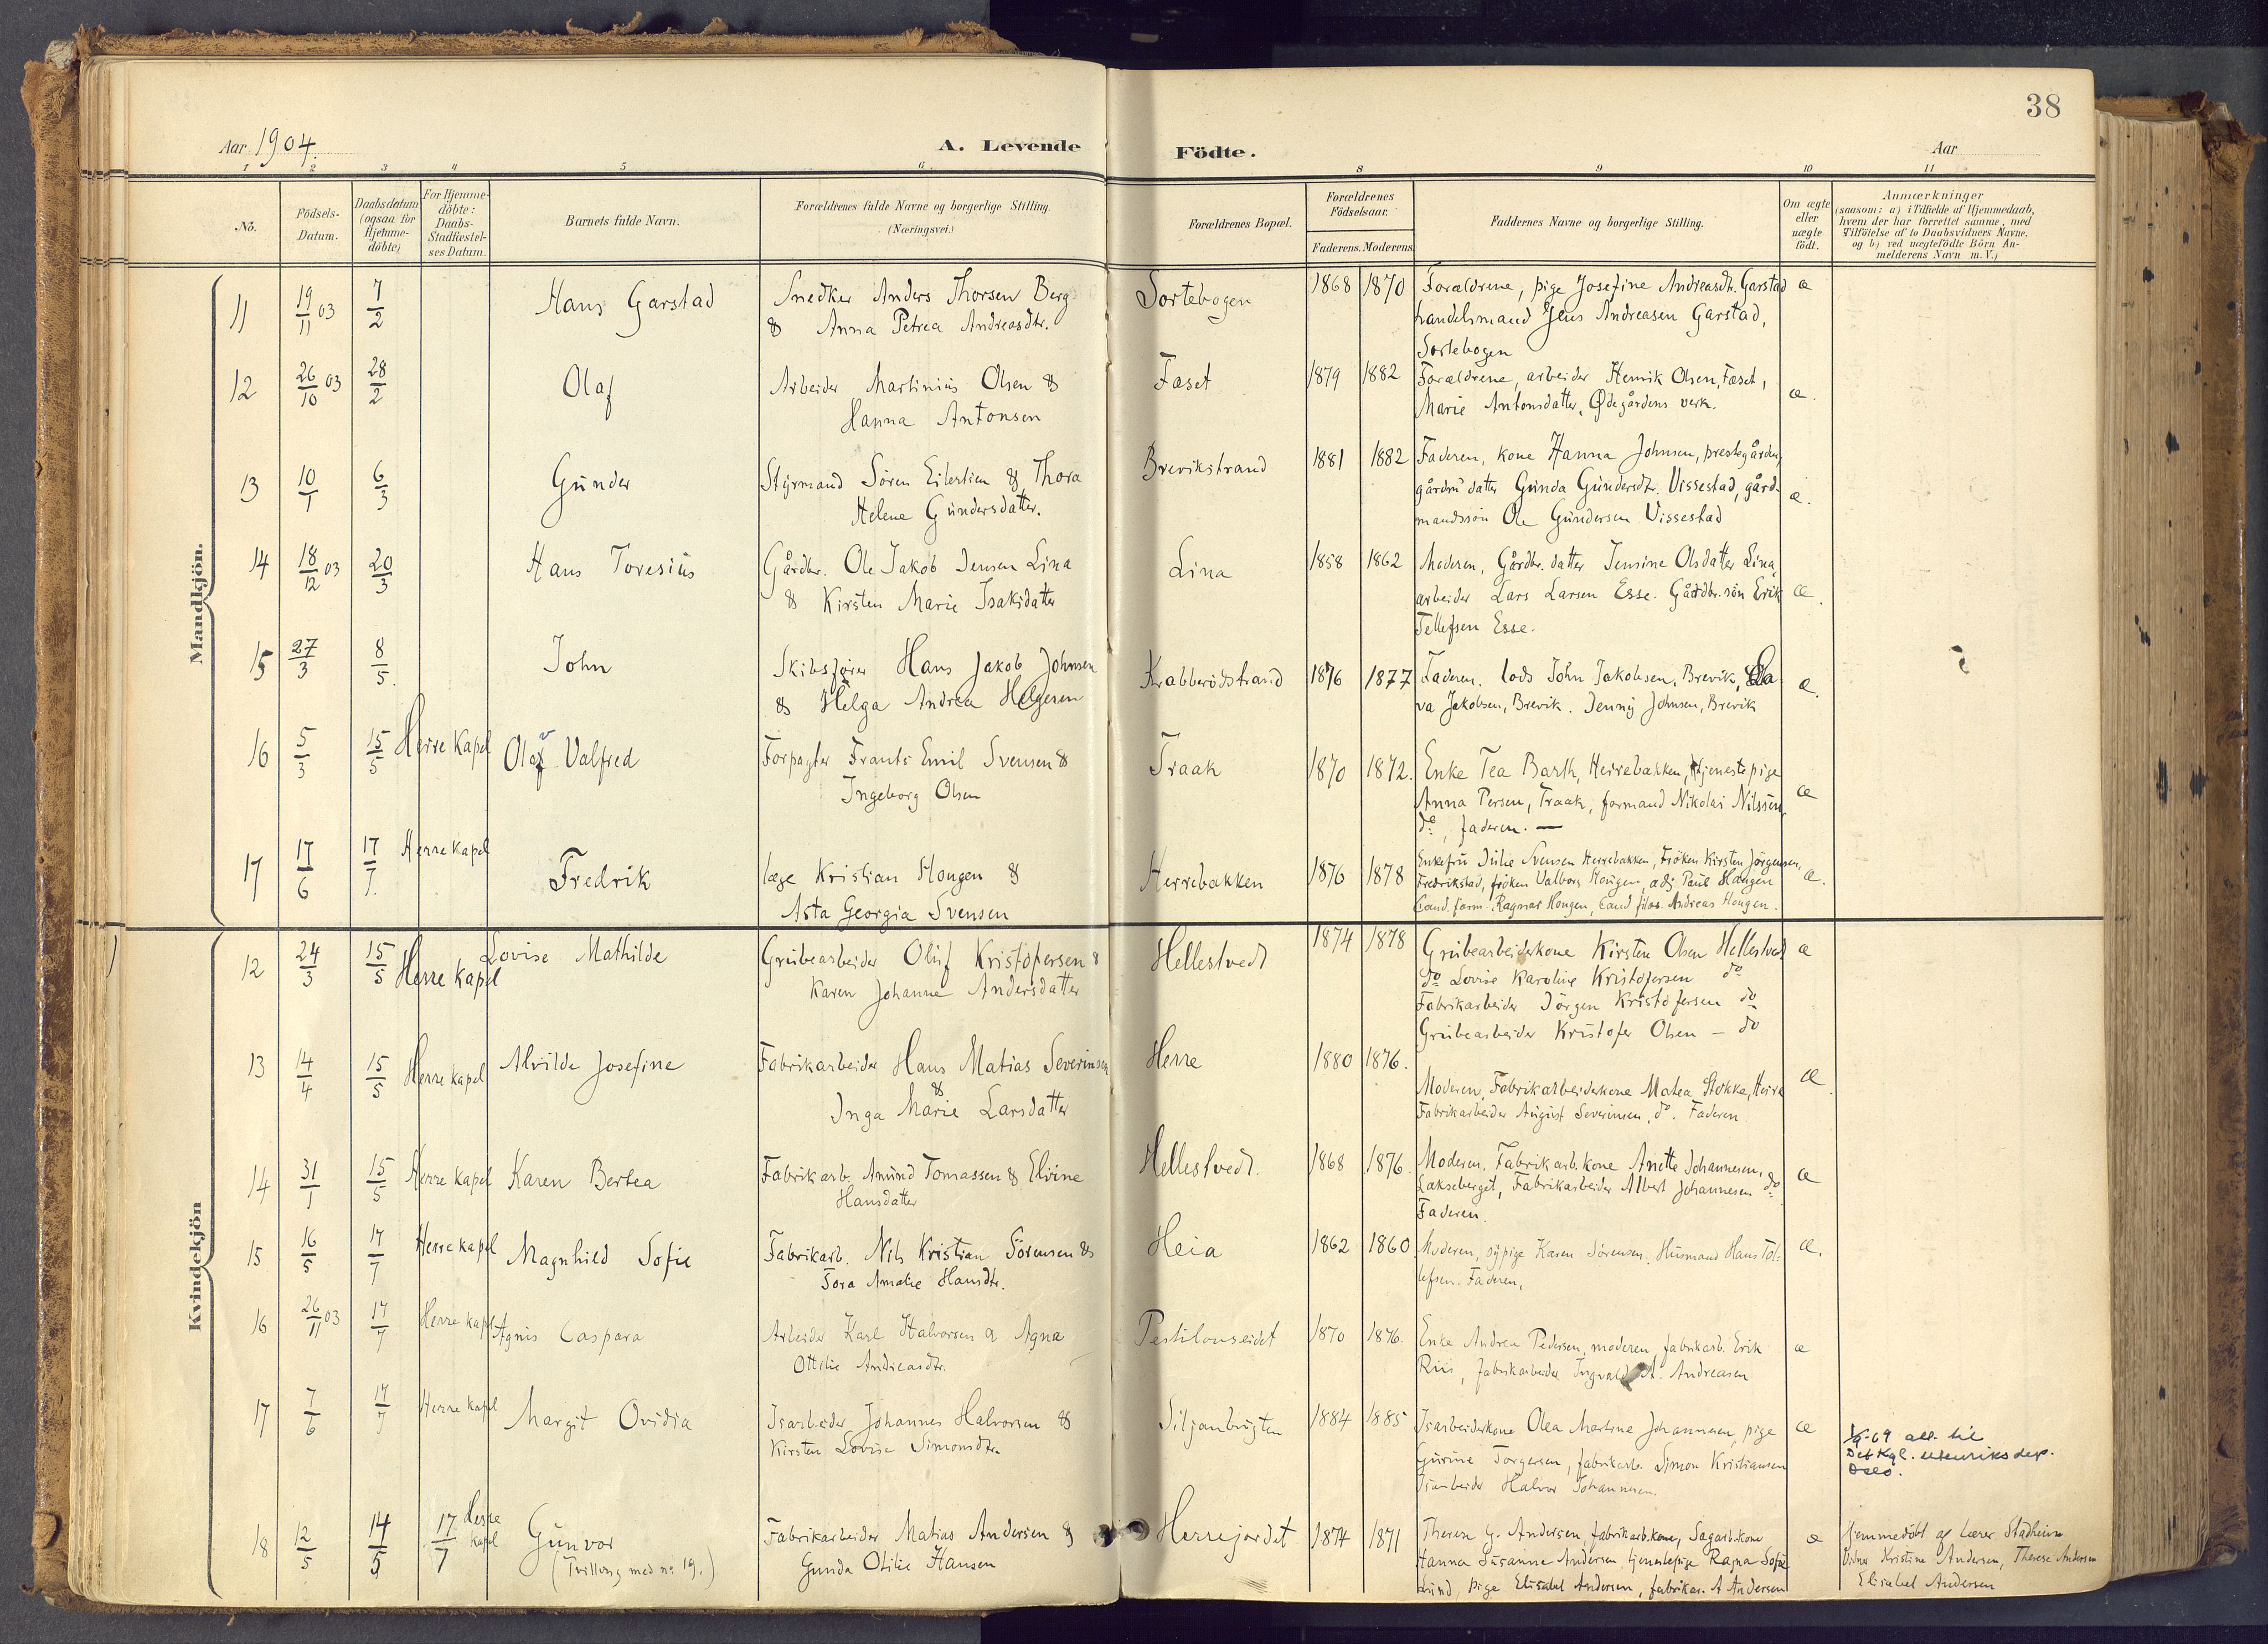 38
Aar 1904.
A. Levende Födte.
Aar
1 2 3 4 5 6 8 9 10 11
No.
Födsels-
Datum.
Daabsdatum
(ogsaa for
Hjemme-
döbte)
For Hjemme-
döbte:
Daabs-
Stadfæstel-
ses Datum.
Barnets fulde Navn.
Forældrenes fulde Navne og borgerlige Stilling.
(Næringsvei.)
Forældrenes Bopæl.
Forældrenes
Födselsaar.
Faderens. Moderens
Faddernes Navne og borgerlige Stilling.
Om ægte
eller
uægte
födt.
Anmærkninger
(saasom: a) i Tilfælde af Hjemmedaab,
hvem der har forrettet samme, med
Tilföielse af to Daabsvidners Navne.
og b) ved uægtefödte Börn An-
melderens Navn m. V.)
Mandkjön.
11 19/11 03 7/2 Hans Garstad
Snedker Anders Thorsen Berg
& Anna Petrea Andreasdtr.
Sortebogen 1868 1870
Forældrene, pige Josefine Andreasdt. Garstad æ
handelsmand Jens Andreasen Garstad,
Sortebogen
12 26/10 03 28/2 Olaf
Arbeider Martinius Olsen &
Hanna Antonsen
Fæset 1879 1882
Forældrene, arbeider Henrik Olsen, Fæset,
Marie Antonsdatter, Ødegårdens verk. æ.
13 10/1 6/3 Gunder
Styrmand Sören Eilertsen & Thora
Helene Gundersdatter.
Brevikstrand 1881 1882
Faderen, kone Hanna Johnsen, prestegården,
gårdm datter Gunda Gundersdtr. Vissestad, gård- æ.
mandssön Ole Gundersen Vissestad
14 18/12 03 20/3 Hans Toresius
Gårdbr. Ole Jakob Jensen Lina
& Kirsten Marie Isaksdatter
Lina 1858 1862
Moderen, Gårdbr. datter Jensine Olsdatter Lina,
arbeider Lars Larsen Esse. Gårdbr. sön Erik æ.
Tellefsen Esse.
15 27/3 8/5. John
Skibsförer Hans Jakob Johnsen
& Helga Andrea Helgesen
Krabberödstrand 1876 1877
Faderen. lods John Jakobsen, Brevik, La
va Jakobsen, Brevik. Jenny Johnsen, Brevik æ.
16 5/3 15/5 Herre Kapel Olaf Valfred
v
Forpagter Frants Emil Svensen &
Ingeborg Olsen
Traak 1870 1872.
Enke Tea Barth, Herrebakken, tjenestepige
Anna Persen, Traak, formand Nikolai Nilssen, æ
do, faderen. —
17 17/6 17/7. Herre kapel Fredrik
læge Kristian Hougen &
Asta Georgia Svensen
Herrebakken 1876 1878
Enkefru Julie Svensen Herrebakken, Fröken Kirsten Jörgensen,
Fredrikstad, fröken Valborg Hougen, adj. Paul Hougen æ.
Cand. farm. Ragnar Hougen, Cand filos. Andreas Hougen.
Kvindekjön
12 24/3 15/5 Herre Kapel Lovise Mathilde
Grubearbeider Oluf Kristofersen &
Karen Johanne Andersdatter
Hellestvedt 1874 1878
Grubearbeiderkone Kirsten Olsen Hellestvedt æ
do Lovise Karoline Kristofersen do
Fabrikarbeider Jörgen Kristofersen do
Grubearbeider Kristofer Olsen — do
13 14/4 15/5 Herre Kapel Alvilde Josefine
Fabrikarbeider Hans Matias Severinsen
&
Inga Marie Larsdatter
Herre 1880 1876.
Moderen, Fabrikarbeiderkone Matea Stokka, Herre æ.
Fabrikarbeider August Severinsen, do. Faderen
14 31/1 15/5 Herre kapel Karen Bertea
Fabrikarb. Amund Tomassen & Elvine
Hansdatter
Hellestvedt. 1868 1876.
Moderen, Fabrikarb. kone Anette Johannesen, æ
Lakseberget, Fabrikarbeider Albert Johannesen do
Faderen.
15 16/5 17/7 Herre kapel Magnhild Sofie
Fabrikarb. Nils Kristian Sörensen &
Tora Amalie Hansdtr.
Heia 1862 1860
Moderen, sypige Karen Sörensen. Husmand Hans Tol- æ.
lefsen. Faderen.
16 26/11 03 17/7 Herre kapel Agnis Caspara
Arbeider Karl Halvorsen & Agna
Ottilie Andreasdtr.
1870 1876.
Enke Andrea Pedersen, moderen, fabrikarb. Erik æ
Riis, fabrikarbeider Ingvald A. Andreasen
17 7/6 17/7 Herre kapel Margit Ovidia
Isarbeider Johannes Halvorsen &
Kirsten Lovise Simonsdtr.
Siljanbugten 1884 1885
Isarbeiderkone Olea Martine Johannesen, pige æ
Gurine Torgersen, fabrikarb. Simon Kristiansen
Isarbeider Halvor Johannesen.
69 att. til
Det Kgl. utenriksdep.
Oslo.
18 12/5 14/5 17/7 Herre kapel Gunvor
(Tvilling med no 19.)
Fabrikarbeider Matias Andersen &
Gunda Otilie Hansen
Herrejordet 1874 1871
Therese G. Andersen fabrikarb.kone, Sagarb.kone æ
Hanna Susanne Andersen, tjenestepige Ragna Sofie
Lund, pige Elisabet Andersen, fabrikar. A Andersen
Hjemmedöbt af lærer Stadheim
Vidner Kristine Andersen, Therese Andersen
Elisabet Andersen